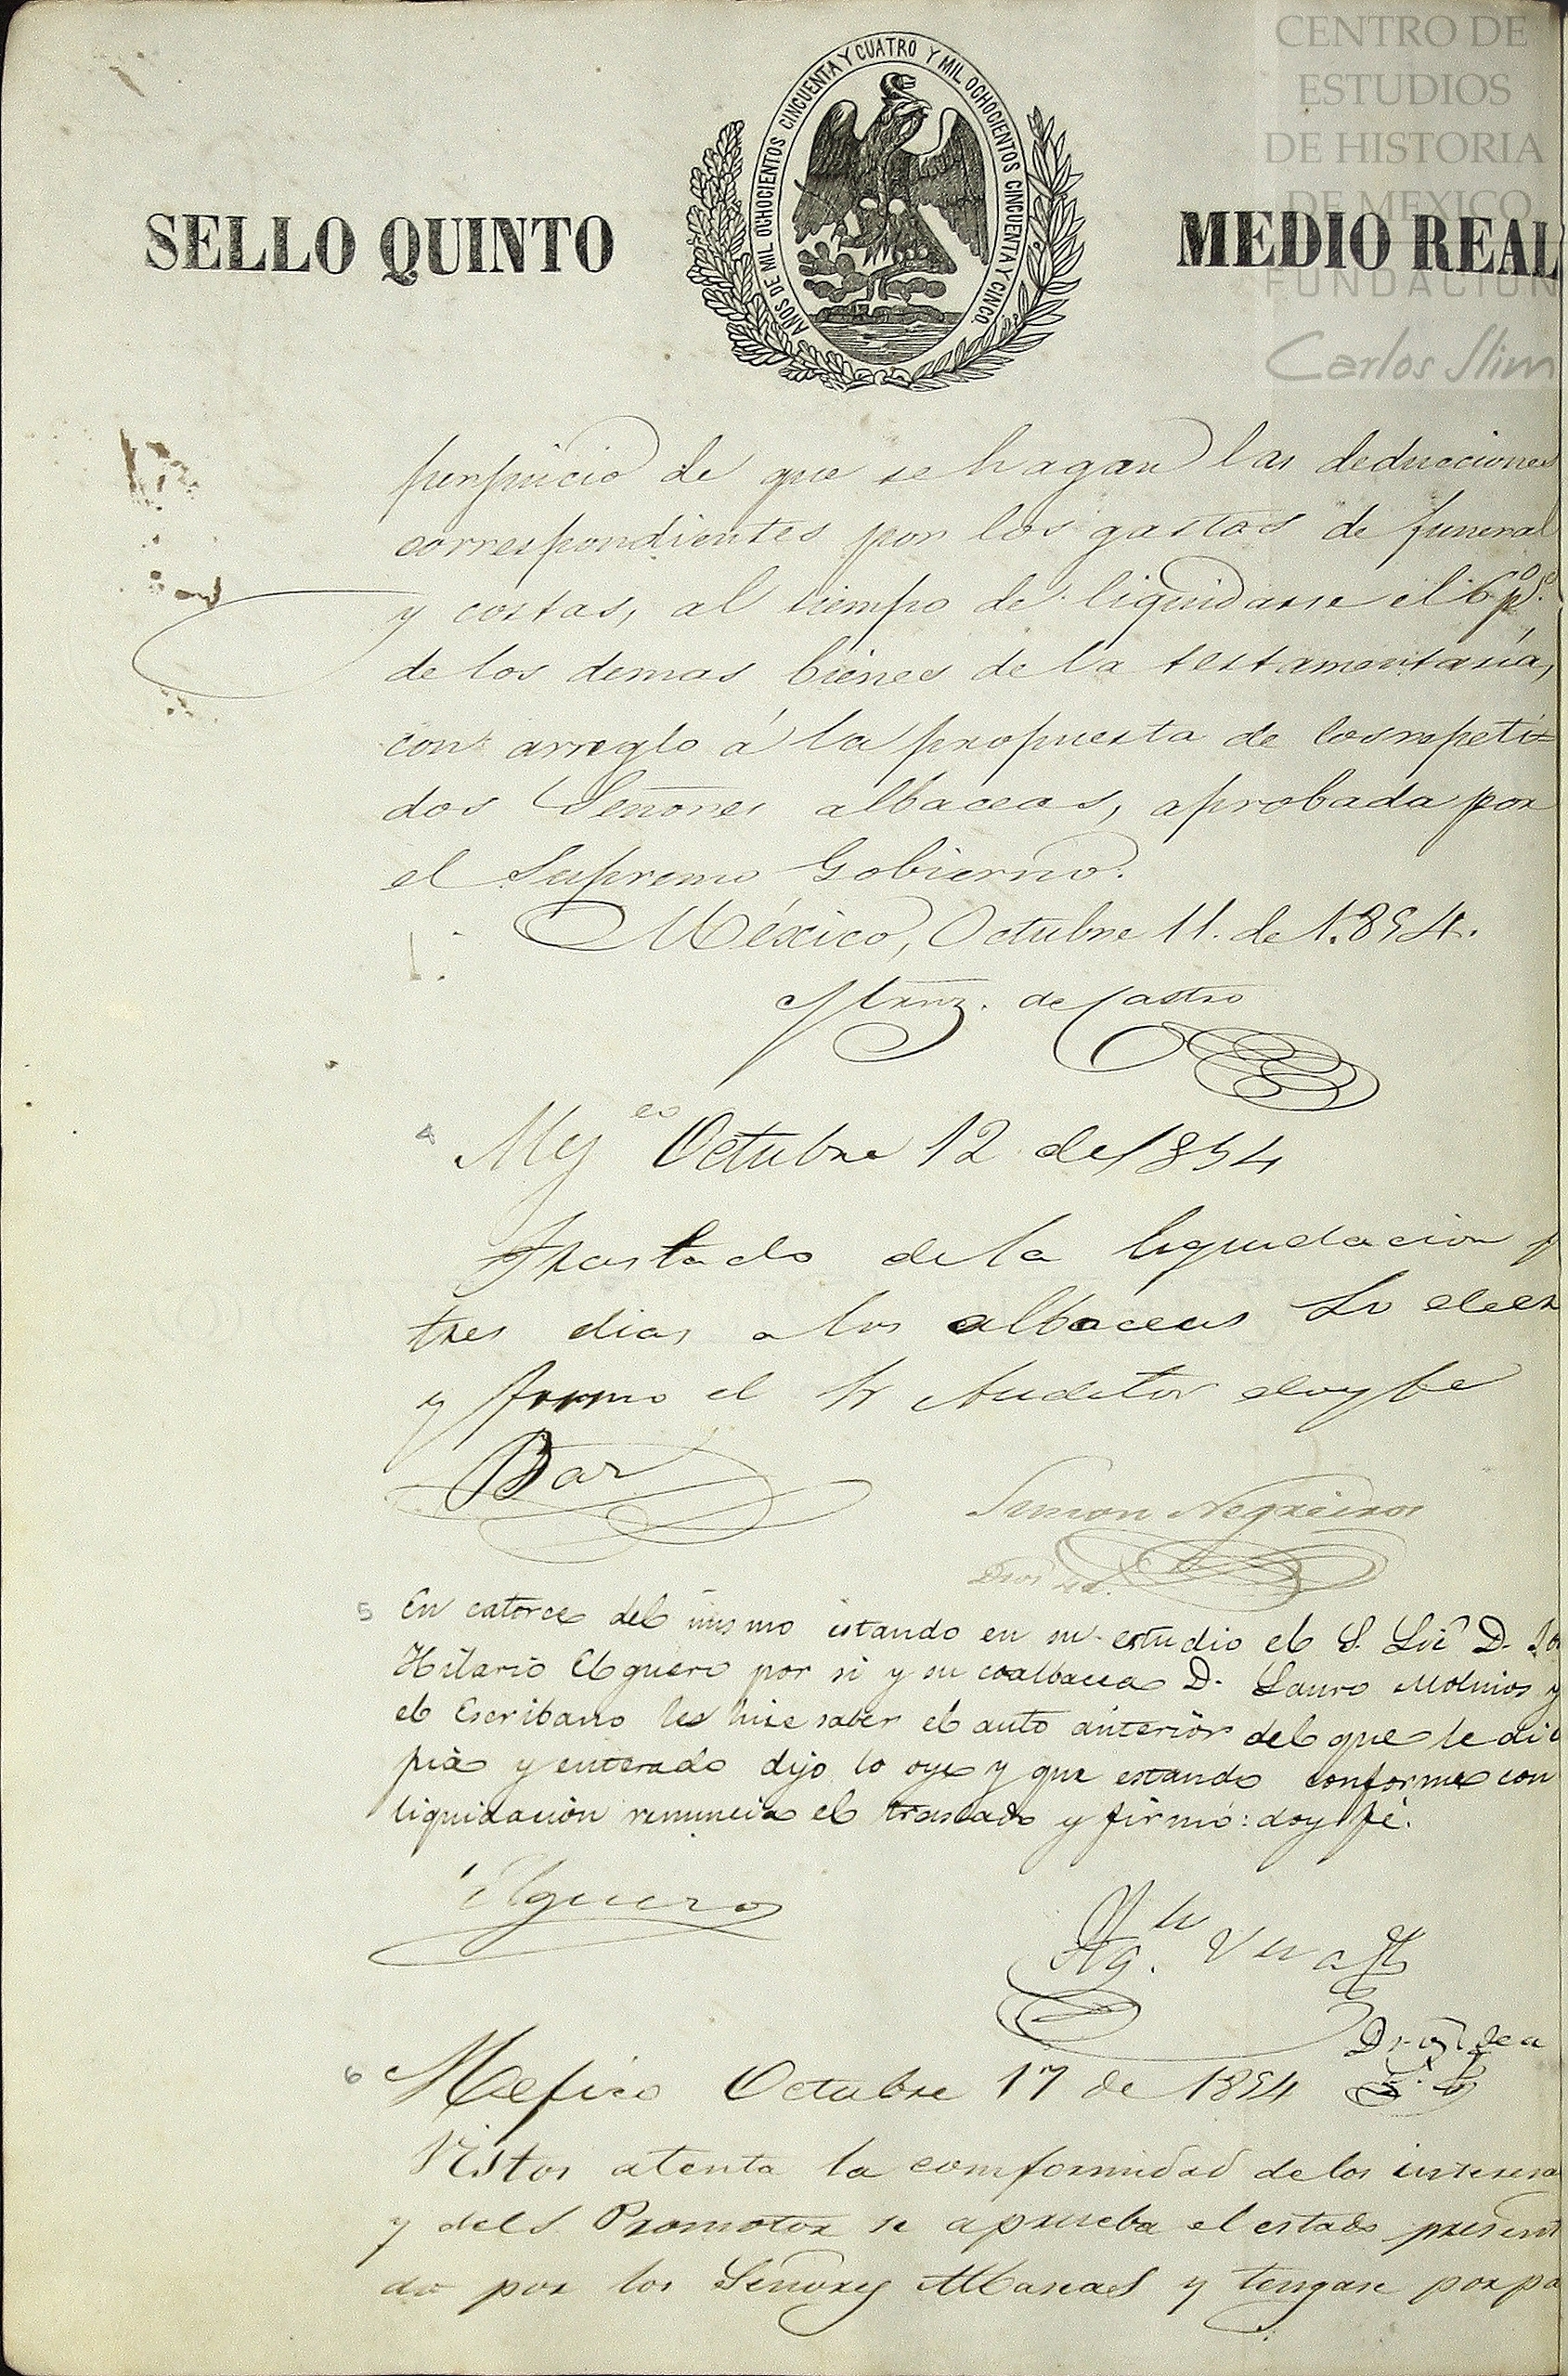 CENTRO DE
ESTUDIOS
DE HISTORIA
DE MEXICO
FUNDACION
Carlos Slim
AÑOS DE MIL OCHOCIENTOS CINCUENTA Y CUATRO Y MIL OCHOCIENTOS CINCUENTA Y CINCO.
SELLO QUINTO
MEDIO REAL
perjuicio de que se hagan las deducciones
correspondientes por los gastos de funeral
y costas, al tiempo de liquidarse el 6 p
de los demas bienes de la testamentaría,
con arreglo á la propuesta de los repeti=
dos Señores albaceas, aprobada por
el Supremo Gobierno.
México, Octubre 11. de 1.854.
de Castro
4 Mejco Octubre 12 de 1854
Traslado de la liquidacion p
tres dias a los albaceas Lo decr
y firmo el Sr Auditor doy fe
Simon Negreiros
5 En catorce del mismo estando en su estudio el S. Lic D. Jo
Hilario Elguero por si y su coalbacea D. Lauro Molinos y
el Escribano les hice saber el auto anterior del que le di c
pia y enterado dijo lo oye y que estando conforme con
liquidación renuncia el traslado y firmó: doy fé.
Elguero
Ag. Vera
6 Mexico Octubre 17 de 1854
Vistos atenta la conformidad de los interesa
y del S. Promotor se aprueba el estado present
do por los Señores Albaseas y tengase por pa